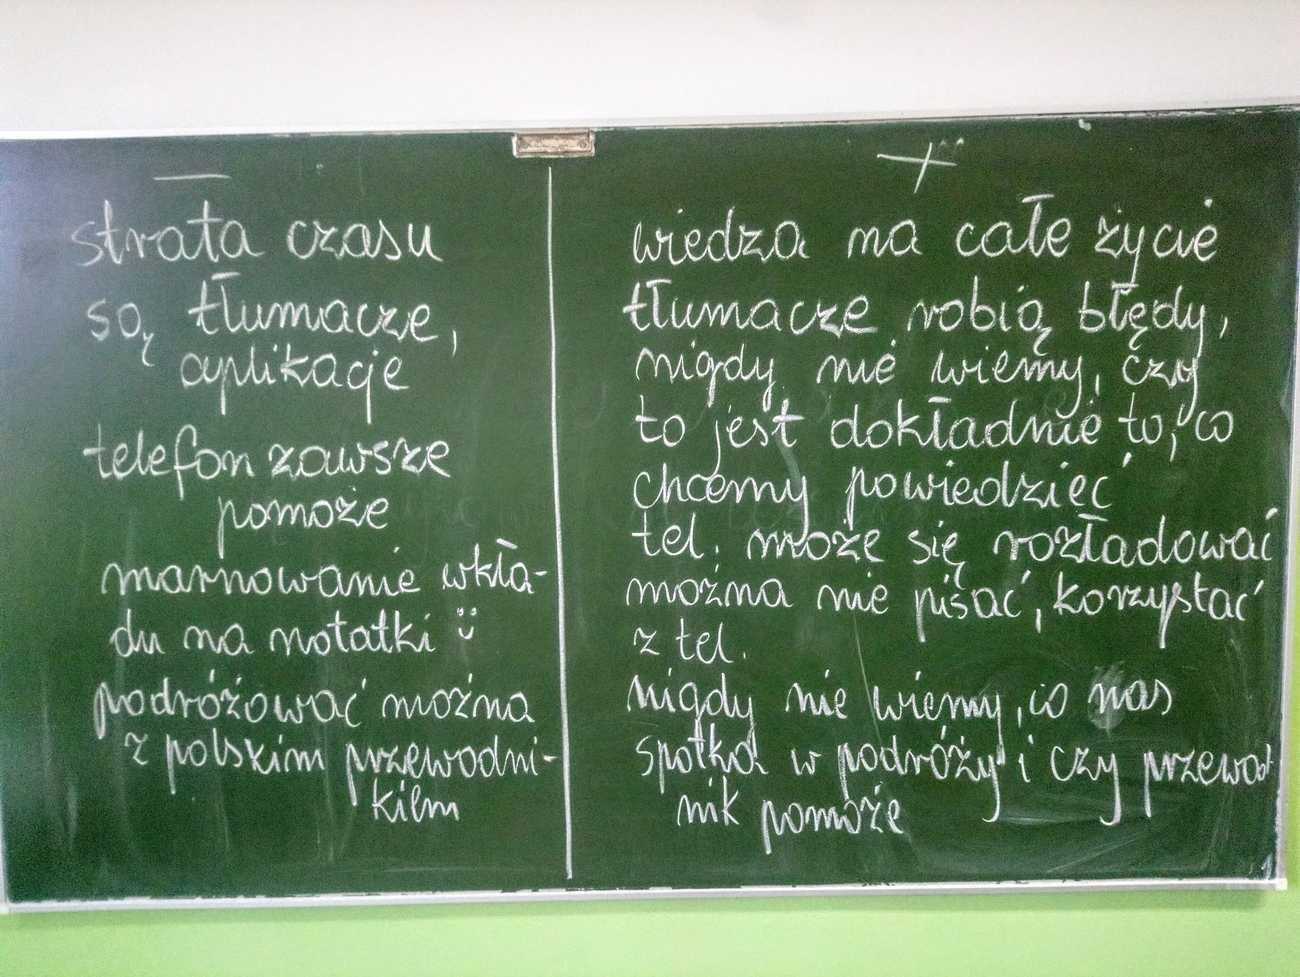 —
strata czasu
są tłumacze,
aplikacje
telefon zawsze
pomoże
marnowanie wkła-
du na notatki
podróżować można
z polskim przewodni-
kiem
+
wiedza na całe życie
tłumacze robią błędy,
nigdy nie wiemy, czy
to jest dokładnie to, co
chcemy powiedzieć
tel. może się rozładować
można nie pisać, korzystać
z tel.
nigdy nie wiemy, co nas
spotka w podróży i czy przewod-
nik pomoże